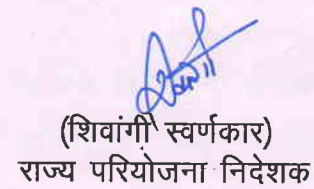 (शिवांगी स्वर्णकार)
राज्य परियोजना निदेशक